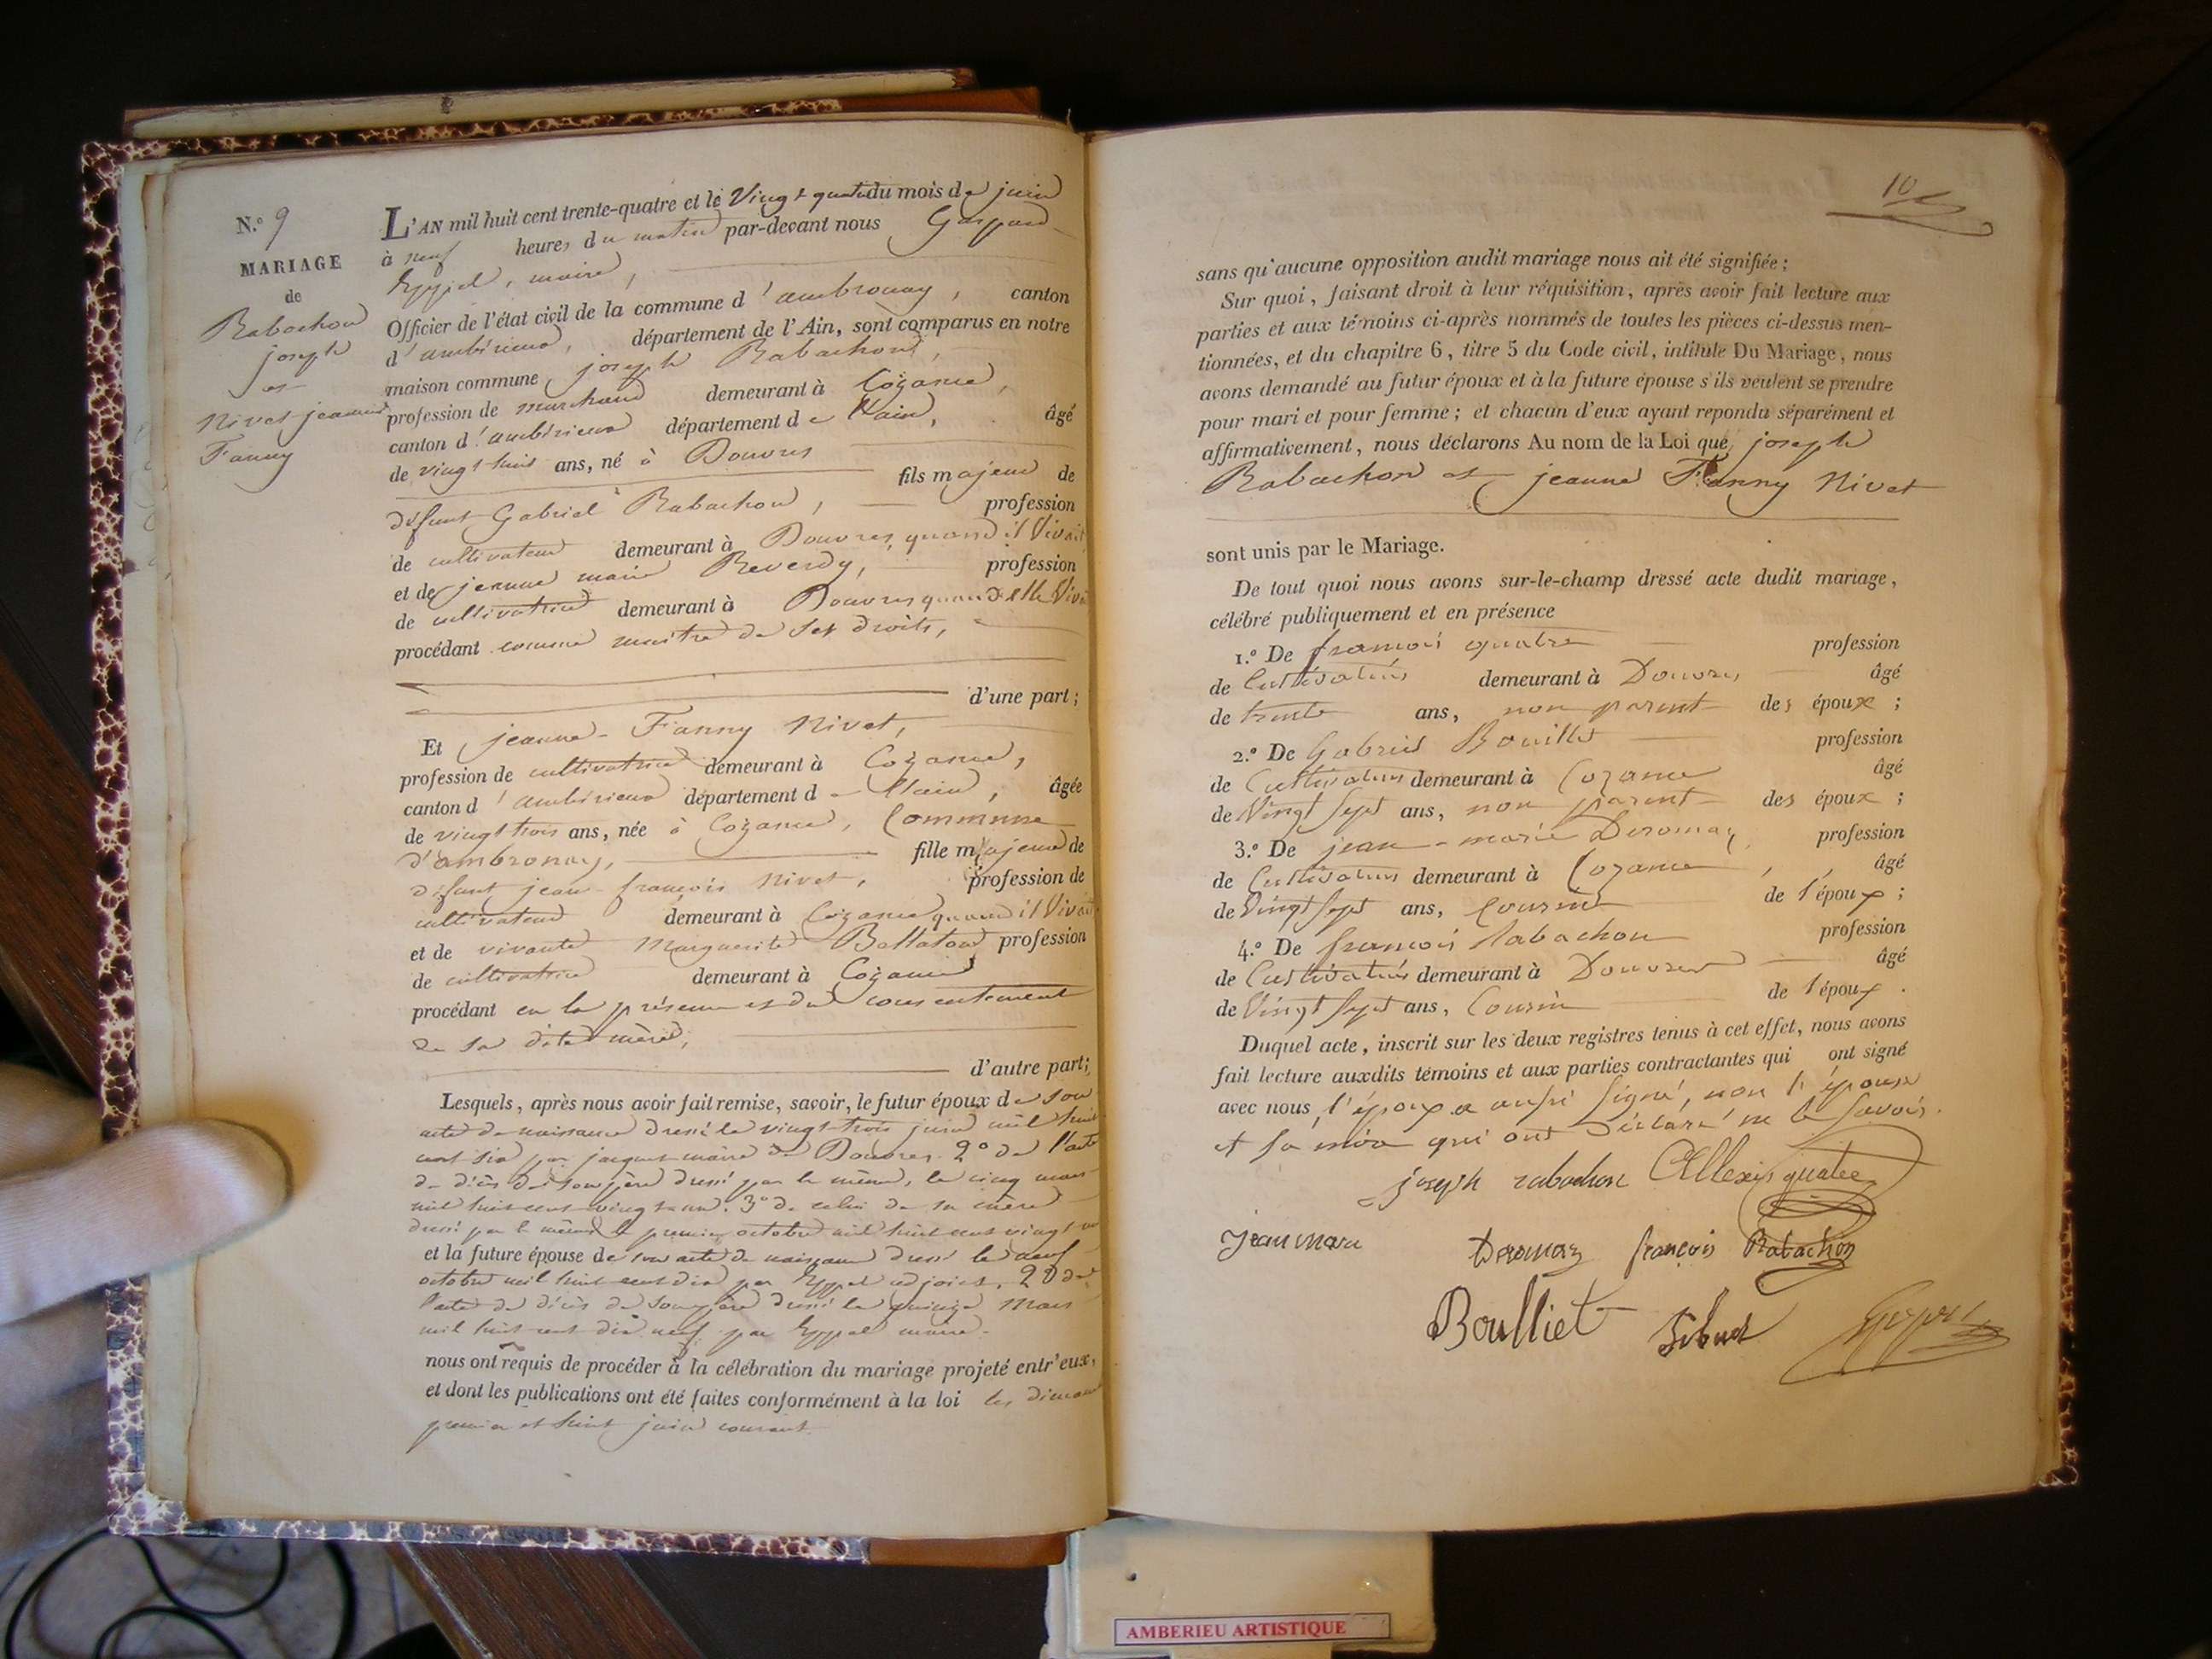 N.º 9
MARIAGE
de
Rabachon
joseph
et
Nivet jeanne
Fanny
L'AN mil huit cent trente-quatre et le Vingt quatre du mois de juin
à neuf heures du matin par-devant nous Gaspard
Eyppel, maire,
Officier de l'état civil de la commune d'ambronay, canton
d'ambérieux, département de l'Ain, sont comparus en notre
maison commune joseph Rabachon,
profession de marchand demeurant à Cozance,
canton d'ambérieux département de l'ain, âgé
de vingt huit ans, né à Douvres
fils majeur de
défunt Gabriel Rabachon, profession
de cultivateur demeurant à Douvres quand il Vivait
et de jeanne marie Reverdy, profession
de cultivatrice demeurant à Douvres quand elle Vivait
procédant comme maitre de ses droits,
d'une part ;
Et jeanne-Fanny Nivet,
profession de cultivatrice demeurant à Cozance,
canton d'ambérieux département de l'ain, âgée
de vingt trois ans, née à Cozance, Commune
d'ambronay, fille majeure de
défunt jean-françois Nivet, profession de
cultivateur demeurant à Cozance quand il Vivait
et de vivante Marguerite Bellaton profession
de cultivatrice demeurant à Cozance
procédant en la présence et du consentement
de sa dite mère,
d'autre part ;
Lesquels, après nous avoir fait remise, savoir, le futur époux de son
acte de naissance dressé le vingt trois juin mil huit
cent six par jacquet maire de Douvres. 2º de l'acte
de décès de son père dressé par le même, le cinq mars
mil huit cent vingt un. 3º de celui de sa mère
dressé par le même le premier octobre mil huit cent vingt
et la future épouse de son acte de naissance dressé le neuf
octobre mil huit cent dix par Eyppel adjoint. 2º de
l'acte de décès de son père dressé le quinze Mars
mil huit cent dix neuf par Eyppel maire.
nous ont requis de procéder à la célébration du mariage projeté entr'eux,
et dont les publications ont été faites conformément à la loi les
premier et huit juin courant
10
sans qu'aucune opposition audit mariage nous ait été signifiée ;
Sur quoi, faisant droit à leur réquisition, après avoir fait lecture aux
parties et aux témoins ci-après nommés de toutes les pièces ci-dessus men-
tionnées, et du chapitre 6, titre 5 du Code civil, intitulé Du Mariage, nous
avons demandé au futur époux et à la future épouse s'ils veulent se prendre
pour mari et pour femme ; et chacun d'eux ayant repondu séparément et
affirmativement, nous déclarons Au nom de la Loi que joseph
Rabachon et jeanne Fanny Nivet
sont unis par le Mariage.
De tout quoi nous avons sur-le-champ dressé acte dudit mariage,
célébré publiquement et en présence
1.º De françois quatre profession
de Cultivateur demeurant à Douvres âgé
de trente ans, non parent des époux ;
2.º De Gabriel Bouillet profession
de Cultivateur demeurant à Cozance âgé
de Vingt Sept ans, non parent des époux ;
3.º De jean-marie Deromaz, profession
de Cultivateur demeurant à Cozance, âgé
de Vingt Sept ans, Cousin de l'époux ;
4.º De françois Rabachon profession
de Cultivateur demeurant à Douvres âgé
de Vingt Sept ans, Cousin de l'époux.
Duquel acte, inscrit sur les deux registres tenus à cet effet, nous avons
fait lecture auxdits témoins et aux parties contractantes qui ont signé
avec nous, l'époux a aussi signé, non l'épouse
et sa mère qui ont déclaré ne le Savoir.
joseph rabachon Allexis quatre
jean marie Deromaz françois Rabachon
Boulliet
AMBERIEU ARTISTIQUE